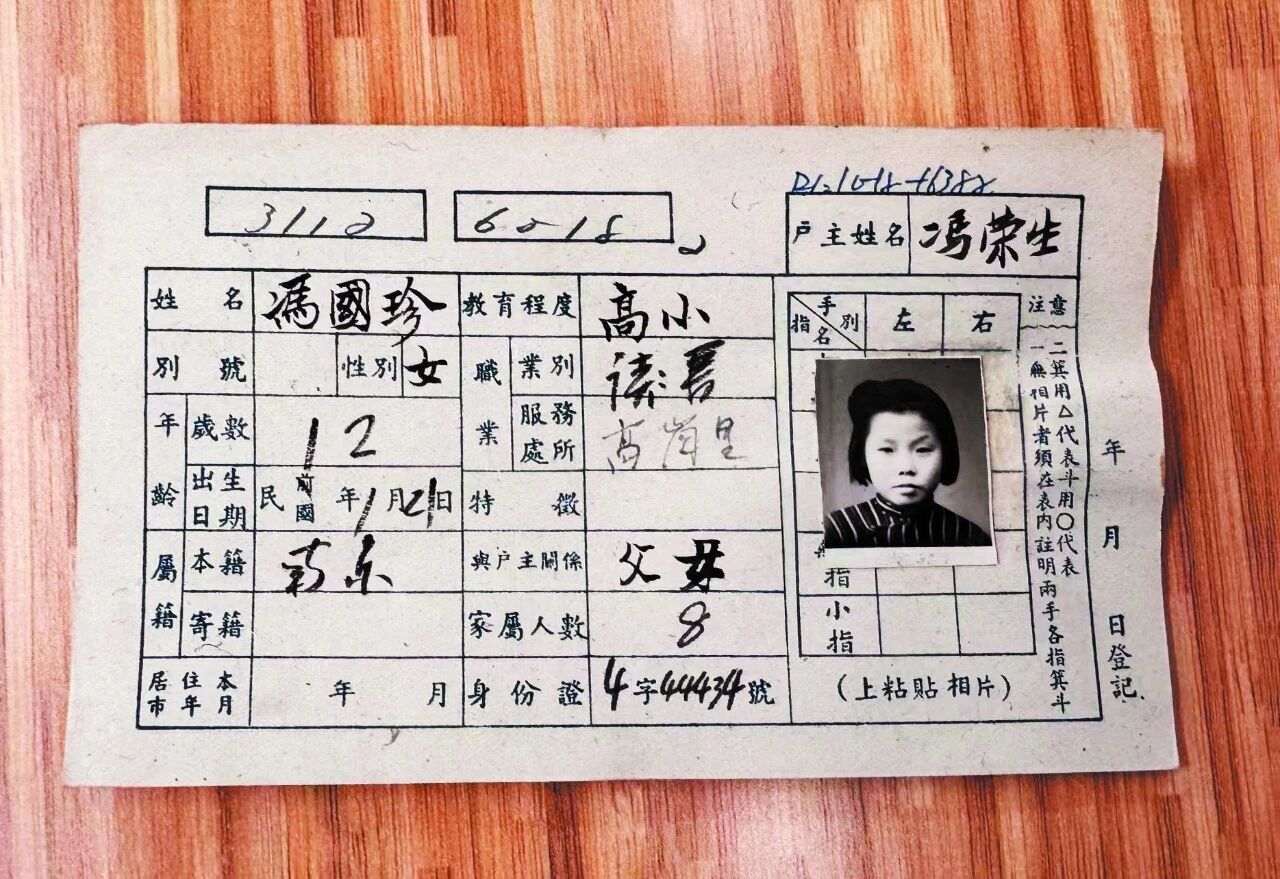 3112
60-18
戶主姓名 馮荣生
姓名 馮國珍 教育程度 高小
別號 性別 女 職業 業別 讀書
年齡 歲數 12 服務處所 高崗里
出生日期 民國 年1月21日 特徵
屬籍 本籍 南京 與戶主關係 父女
寄籍 家屬人數 8
居住本市年月 年 月 身份證 4字44434號
手別 指名 左 右
指
小指
(上粘貼相片)
注意
一無相片者須在表内註明兩手各指箕斗
二箕用△代表斗用〇代表
年 月 日登記